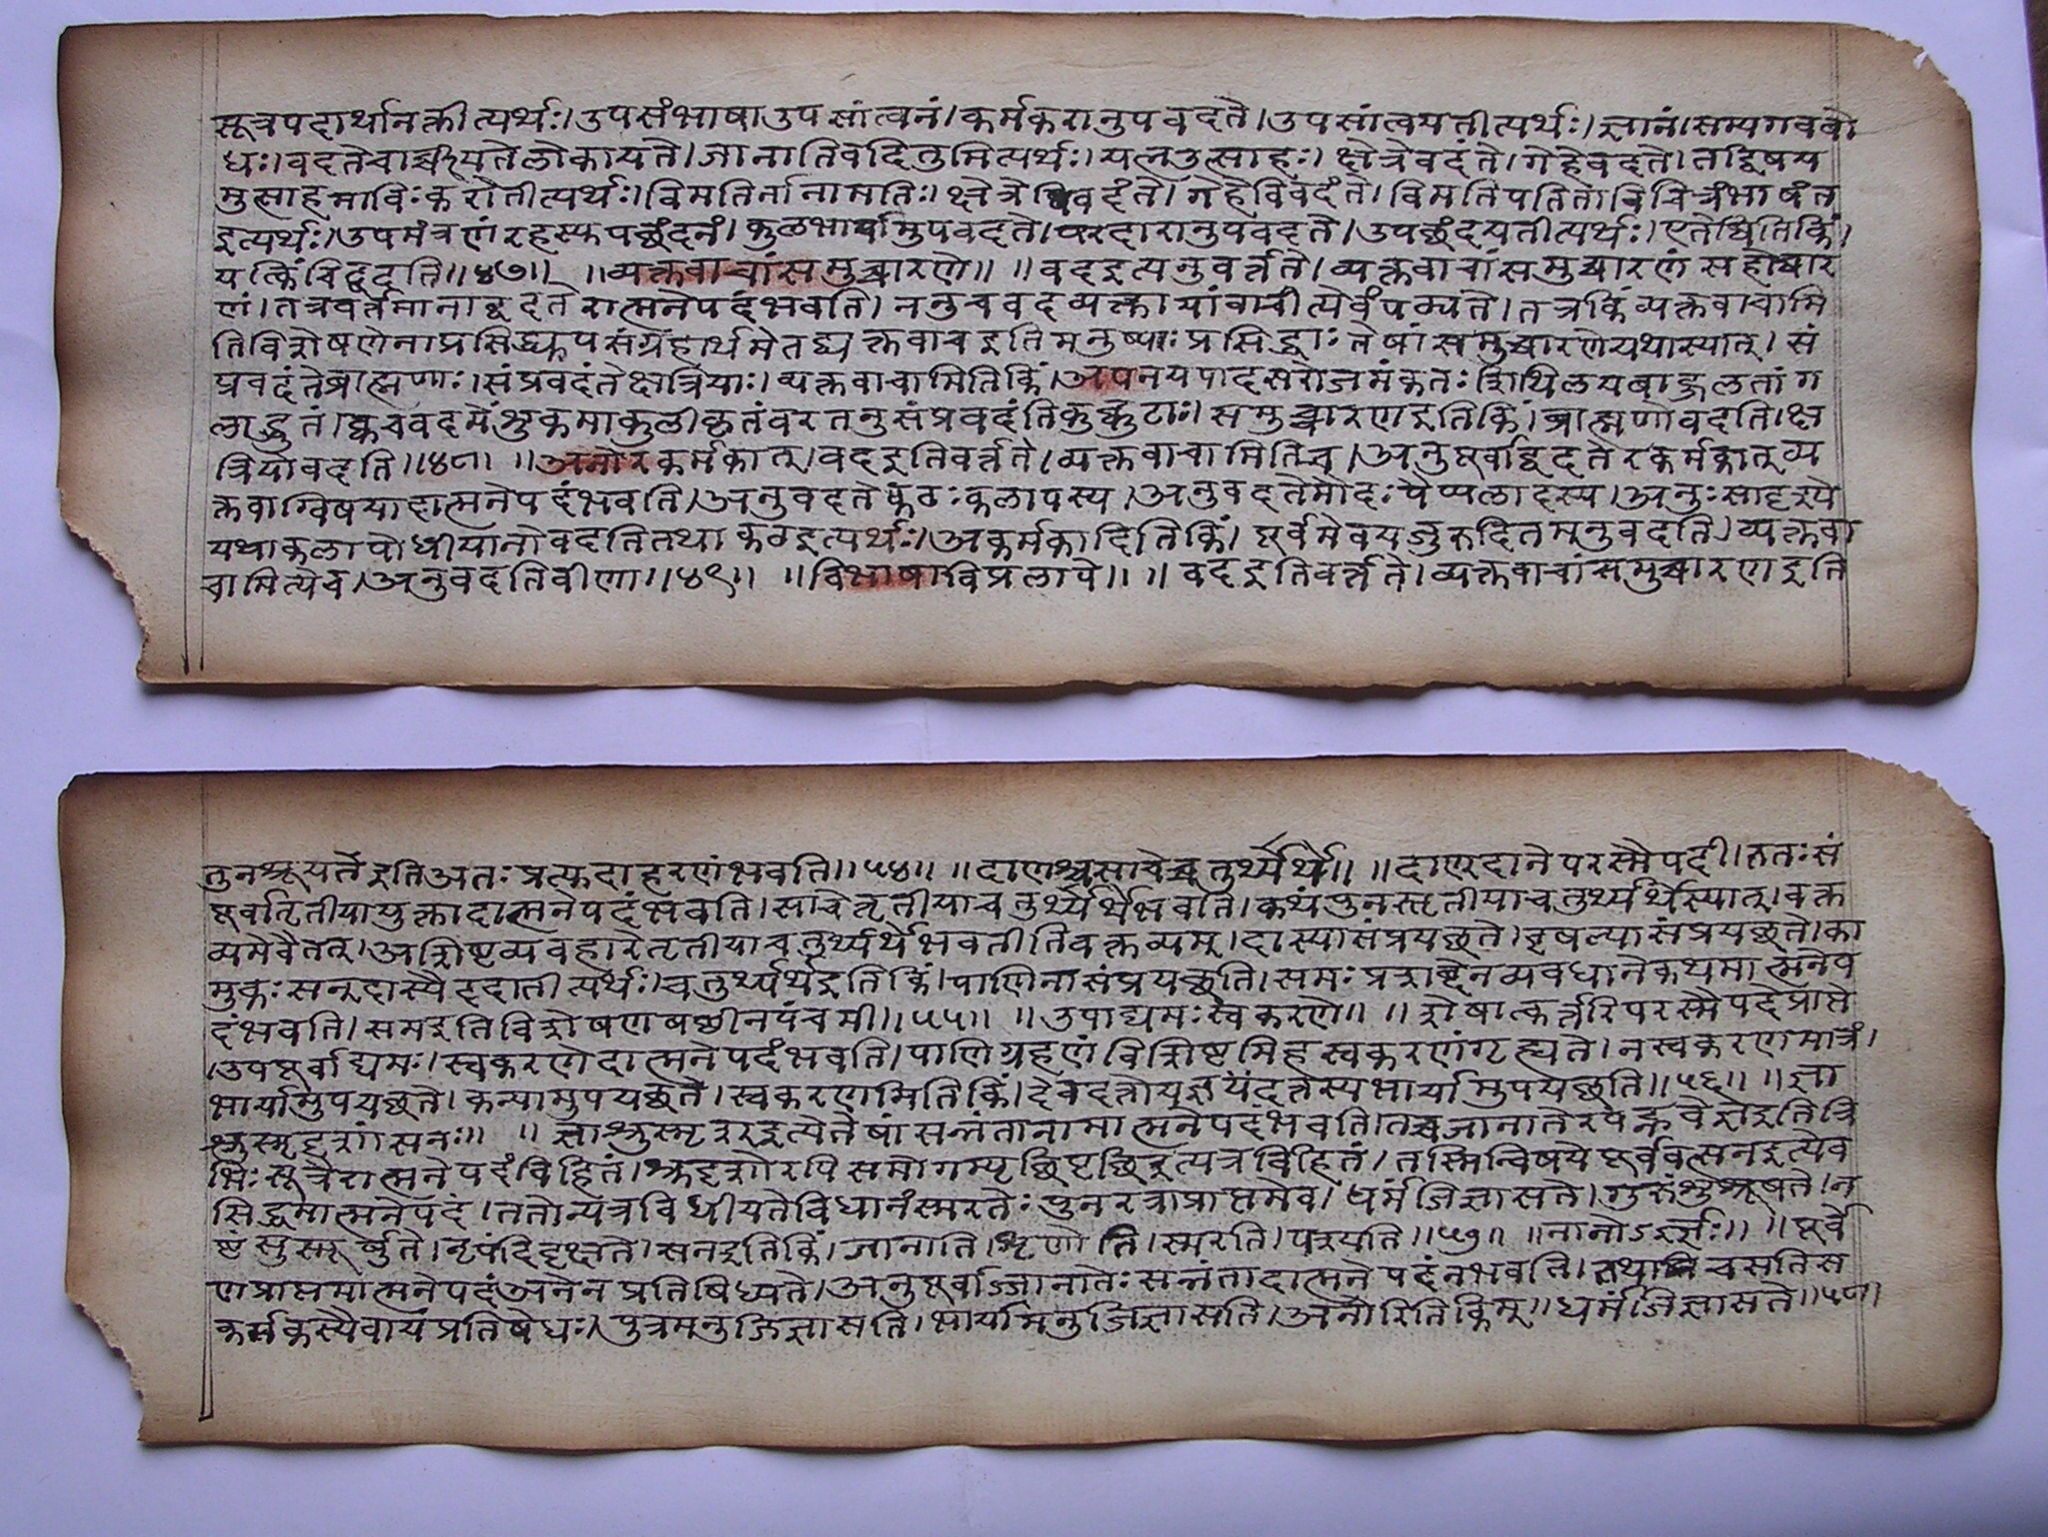 सूत्रपदार्थानक्तीत्यर्थः।उपसंभाषाउपसांत्वनं।कर्मकरानुपवदते।उपसांत्वयतीत्यर्थः।ज्ञानं।सम्यगवबो
धः।वदतेचार्च्चीयतेलोकायते।जानातिवेदितुमित्यर्थः।यत्नउत्साहः।क्षेत्रेवदंते।गेहेवदते।तद्विषय
मुत्साहमाविःकरोतीत्यर्थः।विमतिर्नानामतिः।क्षेत्रेविवदंते।गेहेविवदंते।विमतिपतिताविचित्रंभाषंत
इत्यर्थः।उपमंत्रणंरहस्फपच्छंदनं।कुळभार्यामुपवदते।परदारानुपवदते।उपच्छंदयतीत्यर्थः।एतेष्वितिकिं।
यत्किंचिद्वदति॥४७॥ ॥व्यक्तवाचांसमुच्चारणे॥ ॥वदइत्यनुवर्त्तते।व्यक्तवाचांसमुच्चारणंसहोच्चार
णं।तत्रवर्तमानाद्वदतेरात्मनेपदंभवति।ननुचवदव्यक्तायांवाचीत्येवंपठ्यते।तत्रकिंव्यक्तवाचामि
तिविशेषणेनाप्रसिद्ध्युपसंग्रहार्थमेतद्व्यक्तवाचइतिमनुष्याःप्रसिद्धाःतेषांसमुच्चारणेयथास्यात्।सं
प्रवदंतेब्राह्मणाः।संप्रवदंतेक्षत्रियाः।व्यक्तवाचामितिकिं।अपनयपादसरोजमंकतःशिथिलयबाहुलतांग
लाद्धृतं।क्वचवदमेंशुकमाकुलीकृतंवरतनुसंप्रवदंतिकुक्कुटाः।समुच्चारणइतिकिं।ब्राह्मणोवदति।क्ष
त्रियोवदति॥४८॥ ॥अनोरकर्मकात्।वदइतिवर्त्तते।व्यक्तवाचामितिच।अनुपूर्वाद्वदतेरकर्मकात्व्य
क्तवाग्विषयादात्मनेपदंभवति।अनुवदतेकठःकलापस्य।अनुवदतेमौदःपैप्पलादस्य।अनुःसादृश्ये
यथाकलापोधीयानोवदतितथाकठइत्यर्थः।अकर्मकादितिकिं।पूर्वमेवयजुरुदितमनुवदति।व्यक्तवा
चामित्येव।अनुवदतिवीणा॥४९॥ ॥विभाषाविप्रलापे॥ ॥वदइतिवर्त्तते।व्यक्तवाचांसमुच्चारणइति
तुनश्रूयतेइतिअतःप्रत्फदाहरणंभवति॥५४॥ ॥दाणश्चसाचेच्चतुर्थ्यर्थे॥ ॥दाण्दानेपरस्मैपदी।ततःसं
पूर्वातृतीयायुक्तादात्मनेपदंभवति।साचेत्तृतीयाचतुर्थ्यर्थेभवति।कथंपुनस्तृतीयाचतुर्थ्यर्थेस्यात्।वक्त
व्यमेवैतत्।अशिष्टव्यवहारेतृतीयाचतुर्थ्यर्थेभवतीतिवक्तव्यम्।दास्यासंप्रयछते।वृषल्यासंप्रयछते।का
मुकःसन्दास्यैददातीत्यर्थः।चतुर्थ्यर्थेइतिकिं।पाणिनासंप्रयछति।समःप्रशब्देनव्यवधानेकथमात्मनेप
दंभवति।समइतिविशेषणेषष्ठीनपंचमी॥५५॥ ॥उपाद्यमःस्वकरणे॥ ॥शेषात्कर्त्तरिपरस्मैपदेप्राप्ते
।उपपूर्वाद्यमः।स्वकरणेदात्मनेपदंभवति।पाणिग्रहणंविशिष्टमिहस्वकरणंगृह्यते।नस्वकरणमात्रं।
भार्यामुपयछते।कन्यामुपयछते।स्वकरणमितिकिं।देवदत्तोयज्ञयंदत्तस्यभार्यामुपयछति॥५६॥ ॥ज्ञा
श्रुस्मृदृशांसनः॥ ॥ज्ञाश्रुस्मृदृशइत्येतेषांसन्नंतानामात्मनेपदंभवति।तत्रजानातेरपह्नवेज्ञेइतित्रि
भिःसूत्रैरात्मनेपदंविहितं।श्रुदृशोरपिसमोगम्यृछिपृछिइत्यत्रविहितं।तस्मिन्विषयेपूर्ववत्सनइत्येव
सिद्धमात्मनेपदं।ततोन्यत्रविधीयतेविधानंस्मरतेःपुनरत्राप्राप्तमेव।धर्मंजिज्ञासते।गुरुंशुश्रूषते।न
ष्टंसुस्मूर्षुते।नृपंदिदृक्षते।सनइतिकिं।जानाति।शृणोति।स्मरति।पश्यति॥५७॥ ॥नानोऽर्ज्ञः॥ ॥पूर्वे
णप्राप्तमात्मनेपदंअनेनप्रतिषिध्यते।अनुपूर्वाज्जानातेःसन्नंतादात्मनेपदंनभवति।तथाचसतिस
कर्मकस्यैवायंप्रतिषेधः।पुत्रमनुजिज्ञासति।भार्यामनुजिज्ञासति।अनोरितिकिम्॥धर्मंजिज्ञासते॥५८॥